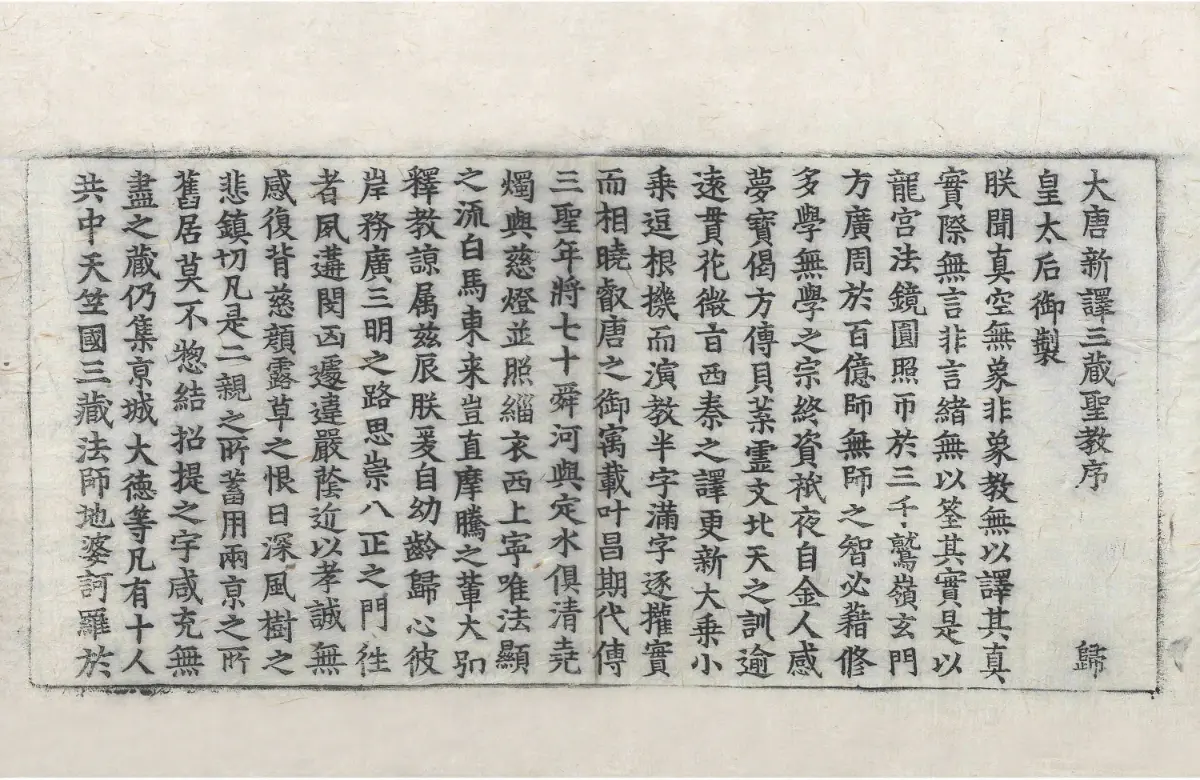 大唐新譯三蔵聖教序 歸
皇太后御製
朕聞真空無象非象教無以譯其真
實際無言非言緒無以筌其實是以
龍宫法鏡圓照帀於三千鷲嶺玄門
方廣周於百億師無師之智必藉修
多學無學之宗終資祇夜自金人感
夢寳偈方傳貝葉靈文北天之訓逾
遠貫花微言西秦之譯更新大乗小
乗逗根機而演教半字滿字逐權實
而相曉叡唐之御寓載叶昌期代傳
三聖年將七十舜河與定水俱清堯
燭與慈燈並照緇衣西上寧唯法顯
之流白馬東来豈直摩騰之軰大弘
釋教諒属兹辰朕爰自幼齡歸心彼
岸務廣三明之路思崇八正之門徃
者夙遘閔凶遽違嚴蔭近以孝誠無
感復背慈顔露草之恨日深風樹之
悲鎮切凡是二親之所蓄用兩京之所
舊居莫不惣結招提之字咸充無
盡之蔵仍集京城大德等凡有十人
共中天竺國三藏法師地婆訶羅於